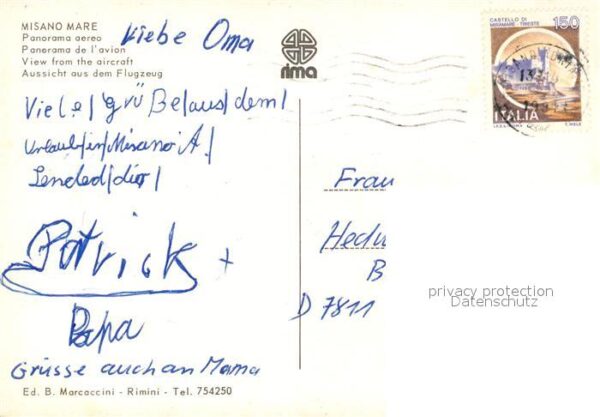 MISANO MARE
Panorama aereo
Panorama de l'avion
View from the aircraft
Aussicht aus dem Flugzeug
rima
CASTELLO DI
MIRAMARE - TRIESTE
150
ITALIA
Liebe Oma
Viele/grüße/aus/dem/
Urlaub/in/Misano A/
Sended/dir/
Patrick +
Papa
Grüsse auch an Mama
Frau
Hedw
B
D 7811
privacy protection
Datenschutz
Ed. B. Marcaccini - Rimini - Tel. 754250